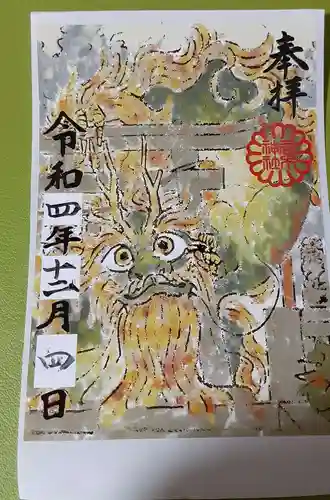 奉拝
令和四年十二月四日